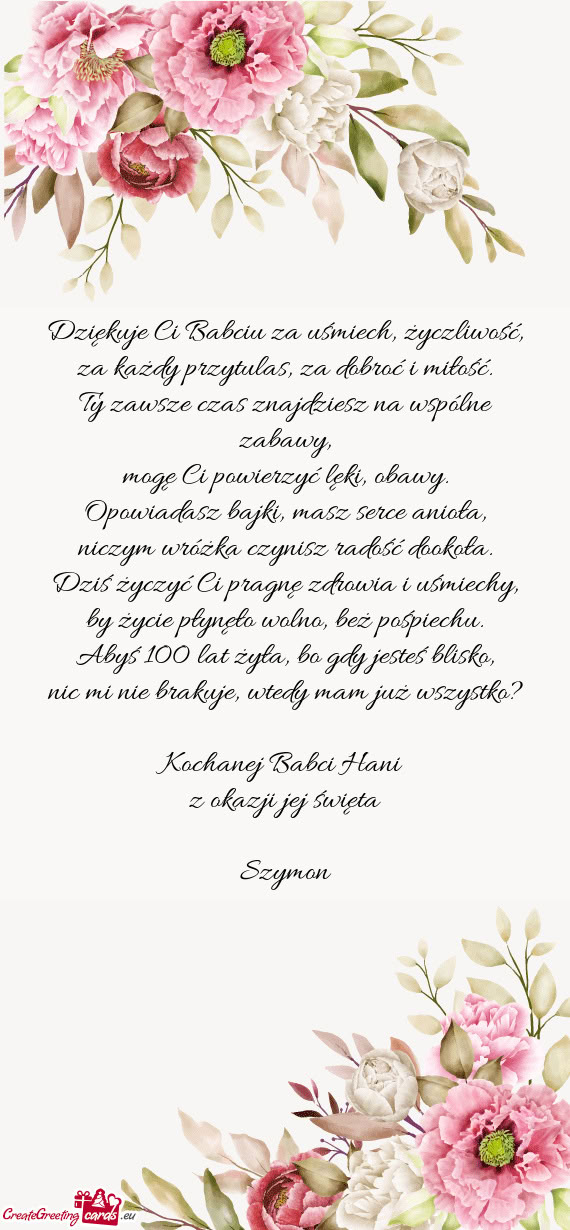 Dziękuje Ci Babciu za uśmiech, życzliwość,
za każdy przytulas, za dobroć i miłość.
Ty zawsze czas znajdziesz na wspólne
zabawy,
mogę Ci powierzyć lęki, obawy.
Opowiadasz bajki, masz serce anioła,
niczym wróżka czynisz radość dookoła.
Dziś życzyć Ci pragnę zdrowia i uśmiechy,
by życie płynęło wolno, beż pośpiechu.
Abyś 100 lat żyła, bo gdy jesteś blisko,
nic mi nie brakuje, wtedy mam już wszystko?
Kochanej Babci Hani
z okazji jej święta
Szymon
CreateGreeting cards .eu